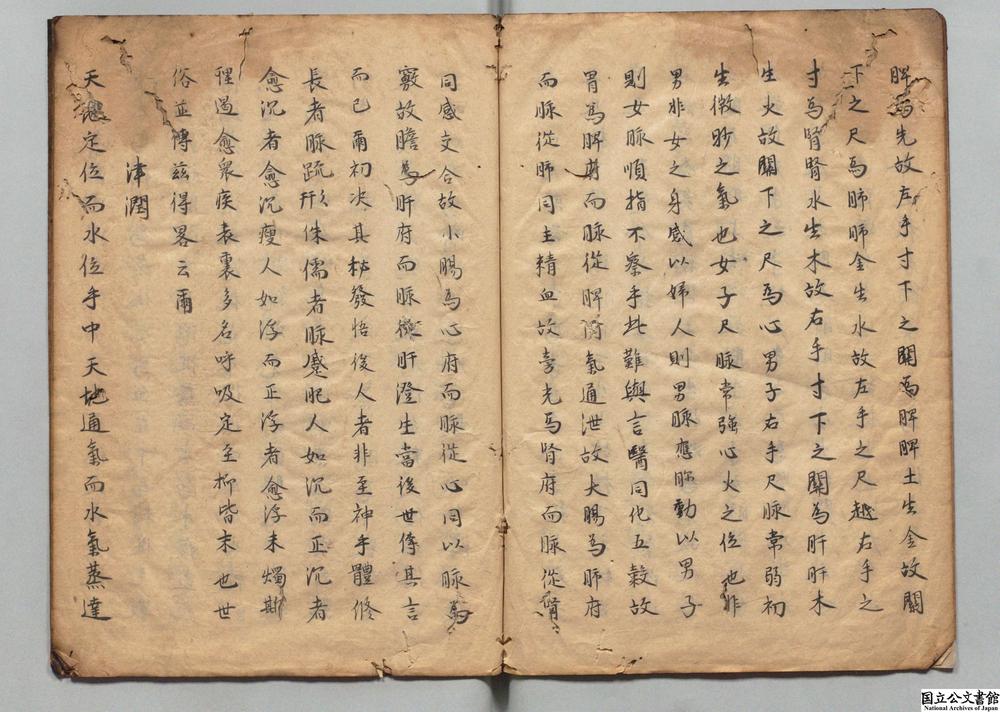 脾為先故左手寸下之關為脾脾土生金故關
下之尺為肺肺金生水故左手之尺越右手之
寸為腎腎水生木故右手寸下之關為肝肝木
生火故關下之尺為心男子右手尺脉常弱初
生微眇之氣也女子尺脉常強心火之位也非
男非女之身感以婦人則男脉應胗動以男子
則女脉順指不察乎此難與言醫同化五穀故
胃為脾府而脉從脾氣通泄故大腸為肺府
而脉從肺同主精血故膀光為腎府而脉從腎
同感交合故小腸為心府而脉從心同以脉為
竅故膽為肝府而脉從肝澄生當後世傳其言
而已爾初决其秘發悟後人者非至神乎體修
長者脉疏形侏儒者脉蹙肥人如沉而正沉者
愈沉者愈沉瘦人如浮而正浮者愈浮未燭斯
理遏愈衆疾表裏多名呼吸定至抑皆末也世
俗並傳兹得畧云爾
津潤
天地定位而水位乎中天地通氣而水氣蒸達
国立公文書館
National Archives of Japan